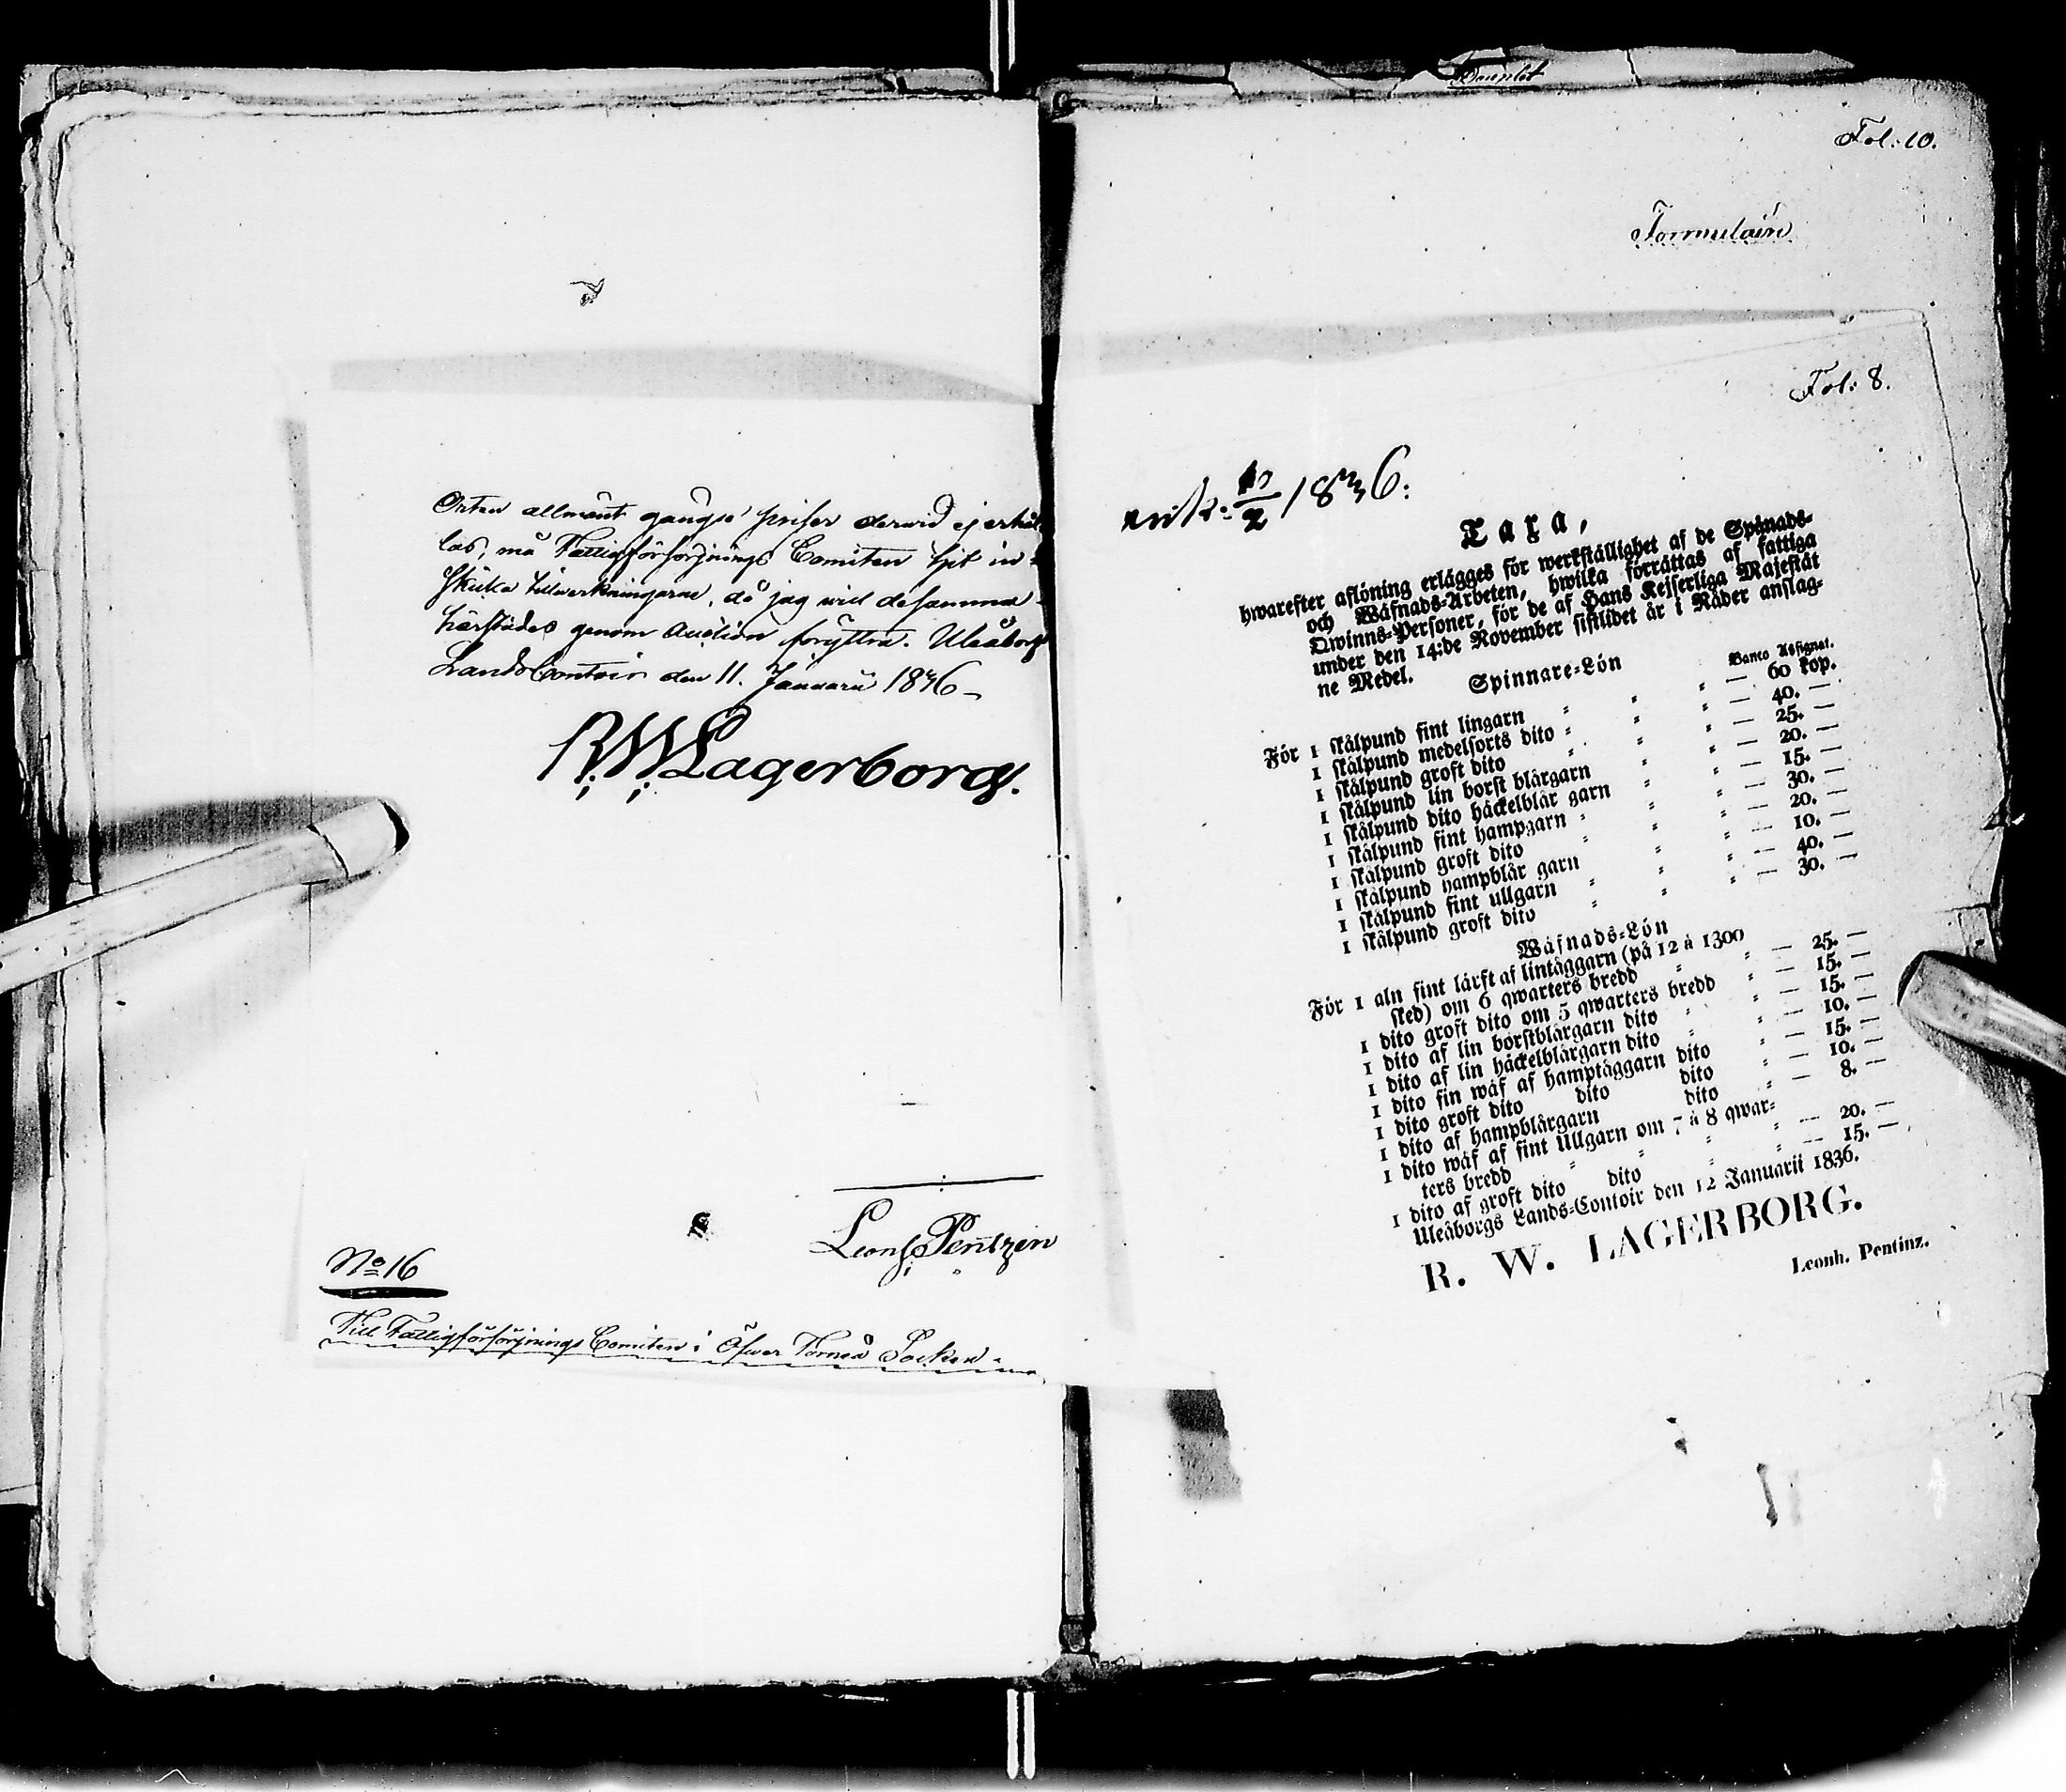 Orten allmänt gängse priser derwid ej erhål-
las, må Fattigförsörjnings Comiten hit in-
skicka tillwerkningarne, då jag will desamma
härstädes genom Auction föryttra. Uleåborgs
LandsContoir den 11. Januarii 1836
R.W. Lagerborg.
Leonh Pentzin
No 16
Till Fattigförsörjnings Comiten i Öfwer Torneå Socken.
Fol: 10.
Formulair
Fol: 8.
1836.
Taxa,
hwarefter aflöning erlägges för werkställighet af de Spånads-
och Wäfnads-Arbeten, hwilka förrättas af fattiga
Qwinns-Personer, för de af Hans Kejserliga Majestät
under den 14:de November sistlidet år i Nåder anslag-
ne Medel.
Spinnare-Lön
Banco Assignat.
För 1 skålpund fint lingarn — 60 kop.
1 skålpund medelsorts dito — 40. —
1 skålpund groft dito — 25. —
1 skålpund lin borst blårgarn — 20. —
1 skålpund dito häckelblår garn — 15. —
1 skålpund fint hampgarn — 30. —
1 skålpund groft dito — 20. —
1 skålpund hampblår garn — 10. —
1 skålpund fint ullgarn — 40. —
1 skålpund groft dito — 30. —
Wäfnads-Lön
För 1 aln fint lärft af lintåggarn (på 12 à 1300
sked) om 6 qwarters bredd — 25. —
1 dito groft dito om 5 qwarters bredd — 15. —
1 dito af lin borstblårgarn dito — 15. —
1 dito af lin häckelblårgarn dito — 10. —
1 dito fin wäf af hamptåggarn dito — 15. —
1 dito groft dito dito dito — 10. —
1 dito af hampblårgarn dito — 8. —
1 dito wäf af fint Ullgarn om 7 à 8 qwar-
ters bredd — 20. —
1 dito af groft dito dito — 15. —
Uleåborgs Lands-Contoir den 12 Januarii 1836.
R. W. LAGERBORG.
Leonh. Pentinz.